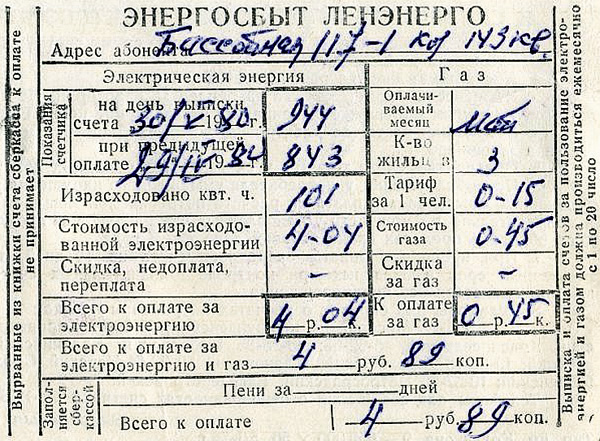 ЭНЕРГОСБЫТ ЛЕНЭНЕРГО
Адрес абонента Бассейная 117-1 143 кв.
Электрическая энергия
Газ
Показания счетчика
на день выписки счета 30/V 1980 г. 944
Оплачиваемый месяц май
при предыдущей оплате 29/IV 19 80 843
К-во жильцов 3
Израсходовано квт. ч. 101
Тариф за 1 чел. 0-15
Стоимость израсходованной электроэнергии 4-04
Стоимость газа 0-45
Скидка, недоплата, переплата –
Скидка за газ –
Всего к оплате за электроэнергию 4 р. 04 к.
К оплате за газ 0 р. 45 к.
Всего к оплате за электроэнергию и газ 4 руб. 89 коп.
Заполняется сберкассой
Пени за дней
Всего к оплате 4 руб. 89 коп.
Вырванные из книжки счета сберкасса к оплате не принимает
Выписка и оплата счетов за пользование электроэнергией и газом должна производиться ежемесячно с 1 по 20 число